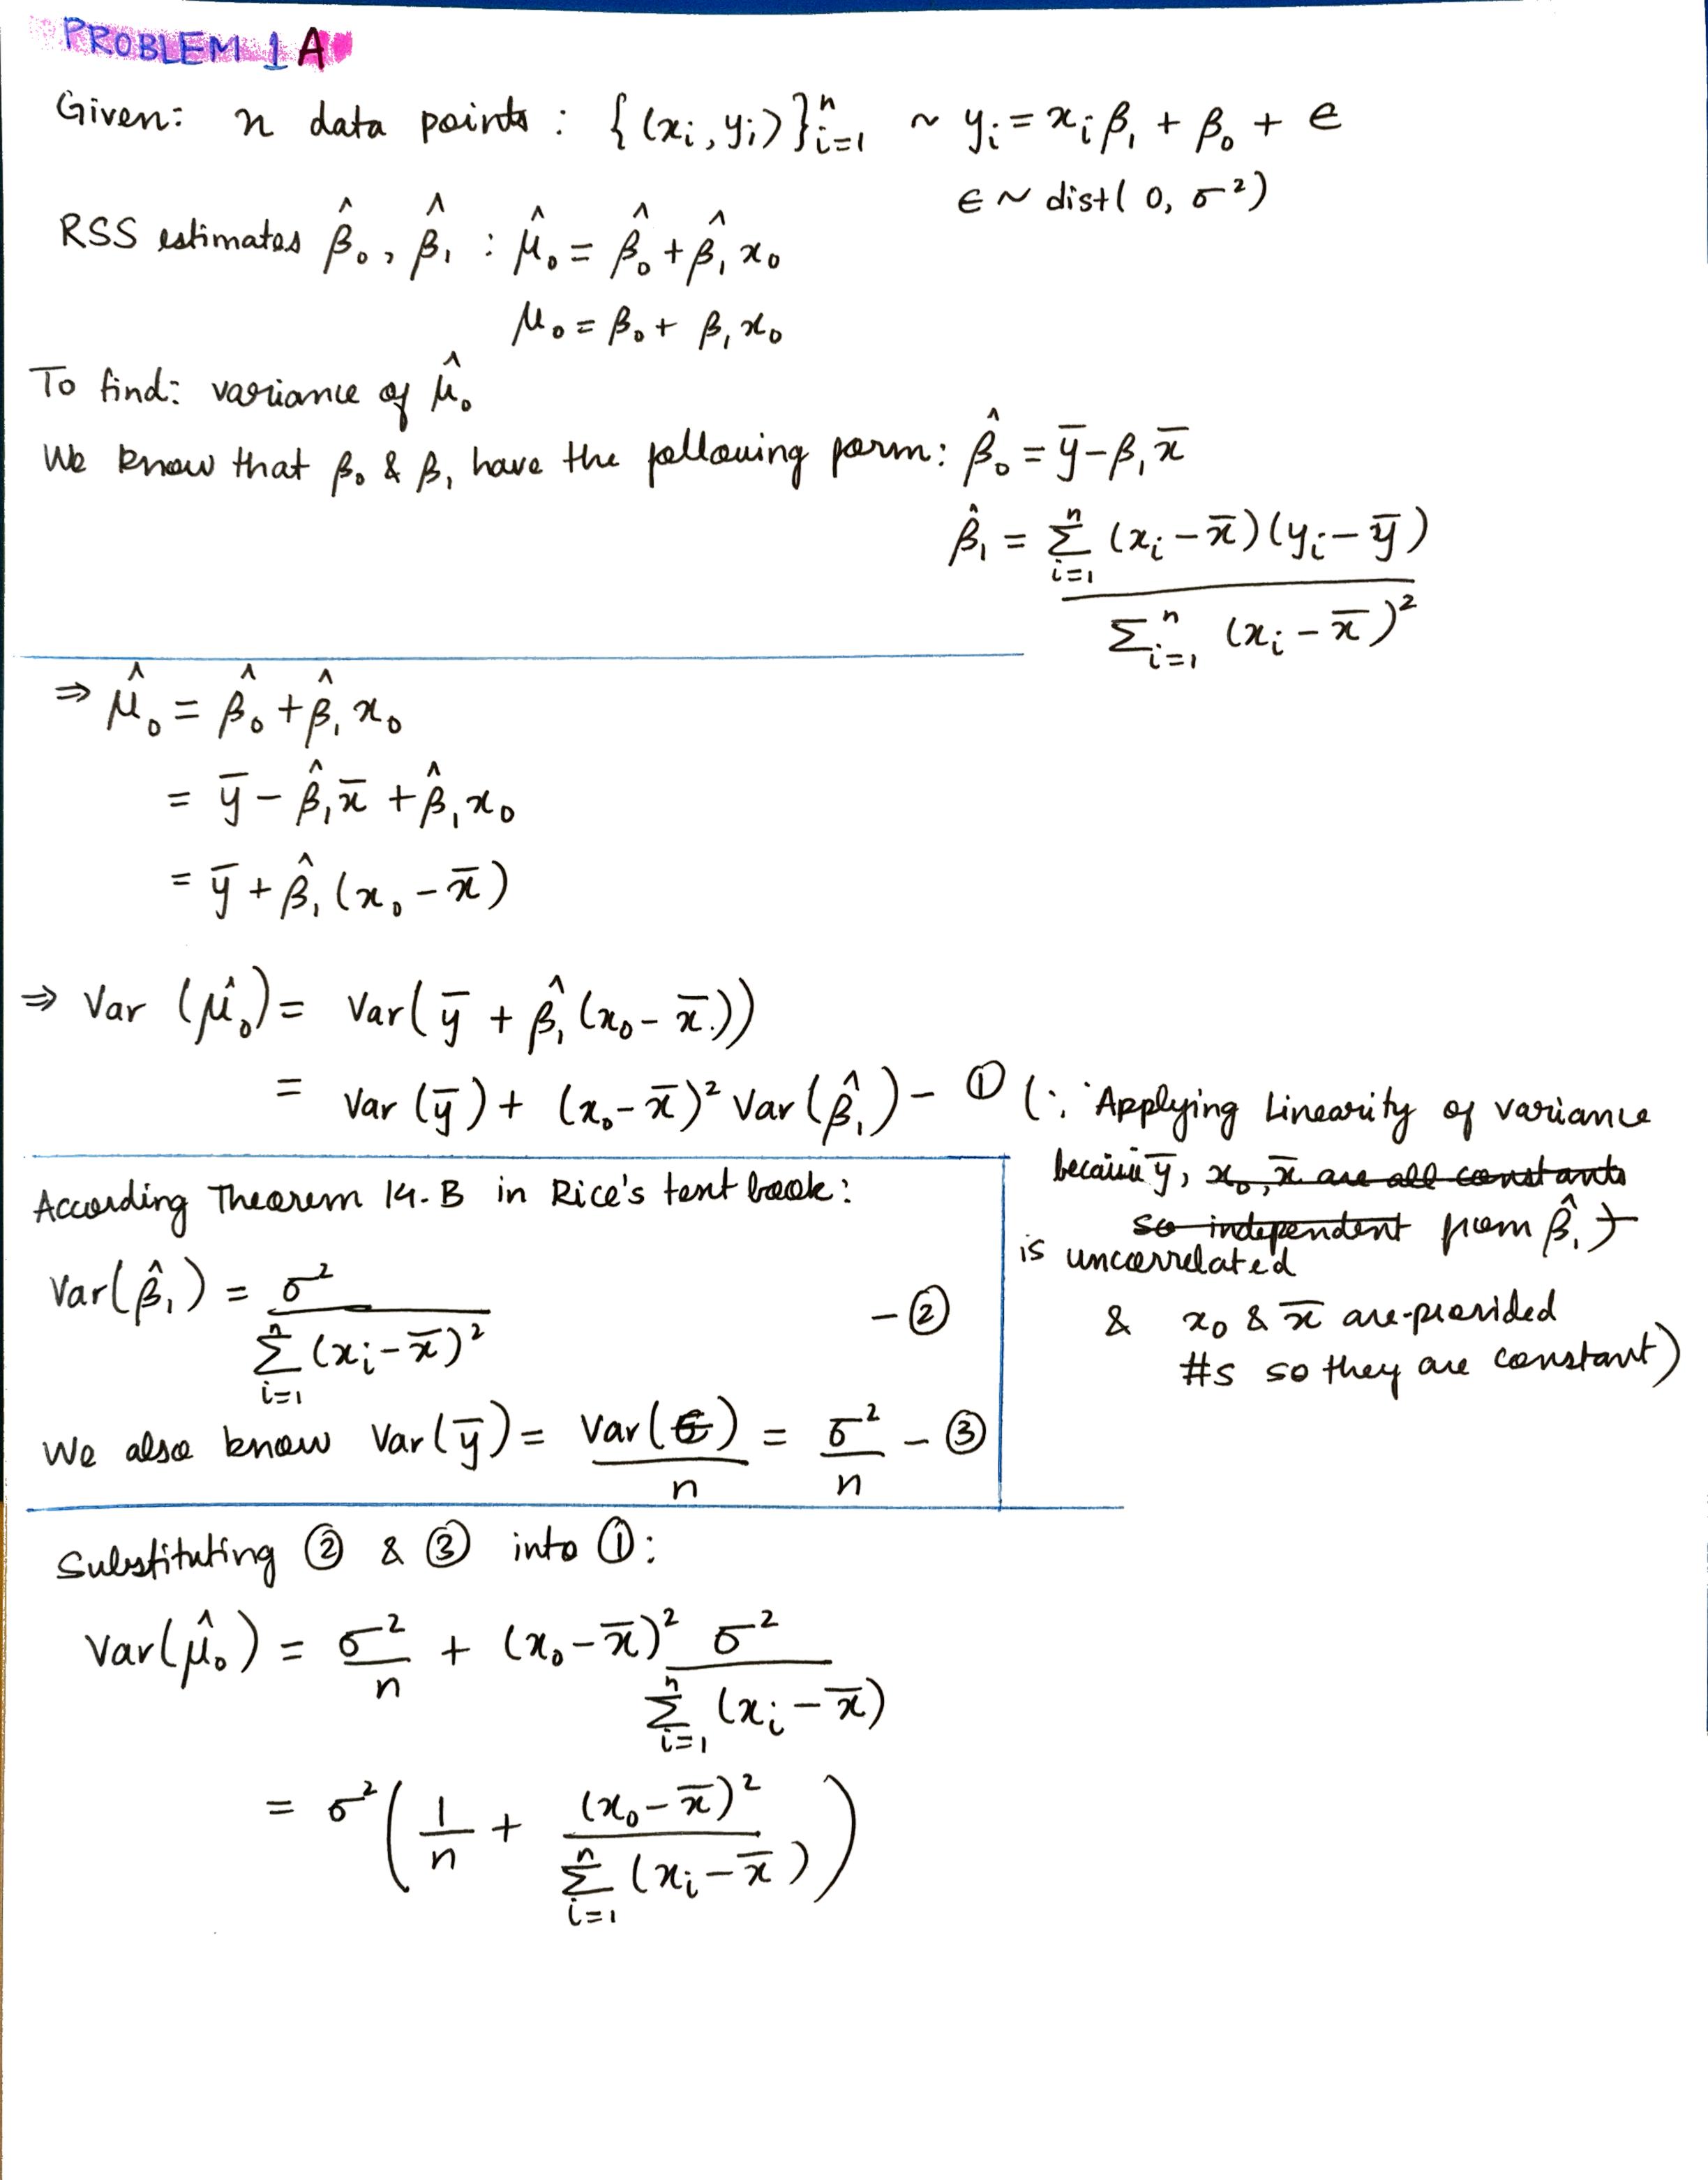 PROBLEM 1 A
Given: n data points : {(xᵢ, yᵢ)}ⁿᵢ₌₁ ~ yᵢ = xᵢ β₁ + β₀ + ϵ
ϵ ~ dist( 0, σ²)
RSS estimates β̂₀, β̂₁ : μ̂₀ = β̂₀ + β̂₁ x₀
μ₀ = β₀ + β₁ x₀
To find: variance of μ̂₀
We know that β₀ & β₁ have the following form: β̂₀ = ȳ − β₁ x̄
β̂₁ = Σⁿᵢ₌₁ (xᵢ − x̄)(yᵢ − ȳ)
Σⁿᵢ₌₁ (xᵢ − x̄)²
⇒ μ̂₀ = β̂₀ + β̂₁ x₀
= ȳ − β̂₁ x̄ + β̂₁ x₀
= ȳ + β̂₁ (x₀ − x̄)
⇒ Var (μ̂₀) = Var( ȳ + β̂₁ (x₀ − x̄))
= Var (ȳ) + (x₀ − x̄)² Var (β̂₁) − ① (∵ Applying Linearity of variance
because ȳ, x₀, x̄ are all constants
so independent from β̂₁)
is uncorrelated
& x₀ & x̄ are provided
#s so they are constant)
According Theorem 14.B in Rice's text book:
Var(β̂₁) = σ² / Σⁿᵢ₌₁ (xᵢ − x̄)² − ②
We also know Var(ȳ) = Var(ϵ) / n = σ² / n − ③
Substituting ② & ③ into ①:
Var(μ̂₀) = σ² / n + (x₀ − x̄)² σ² / Σⁿᵢ₌₁ (xᵢ − x̄)
= σ² ( 1 / n + (x₀ − x̄)² / Σⁿᵢ₌₁ (xᵢ − x̄) )